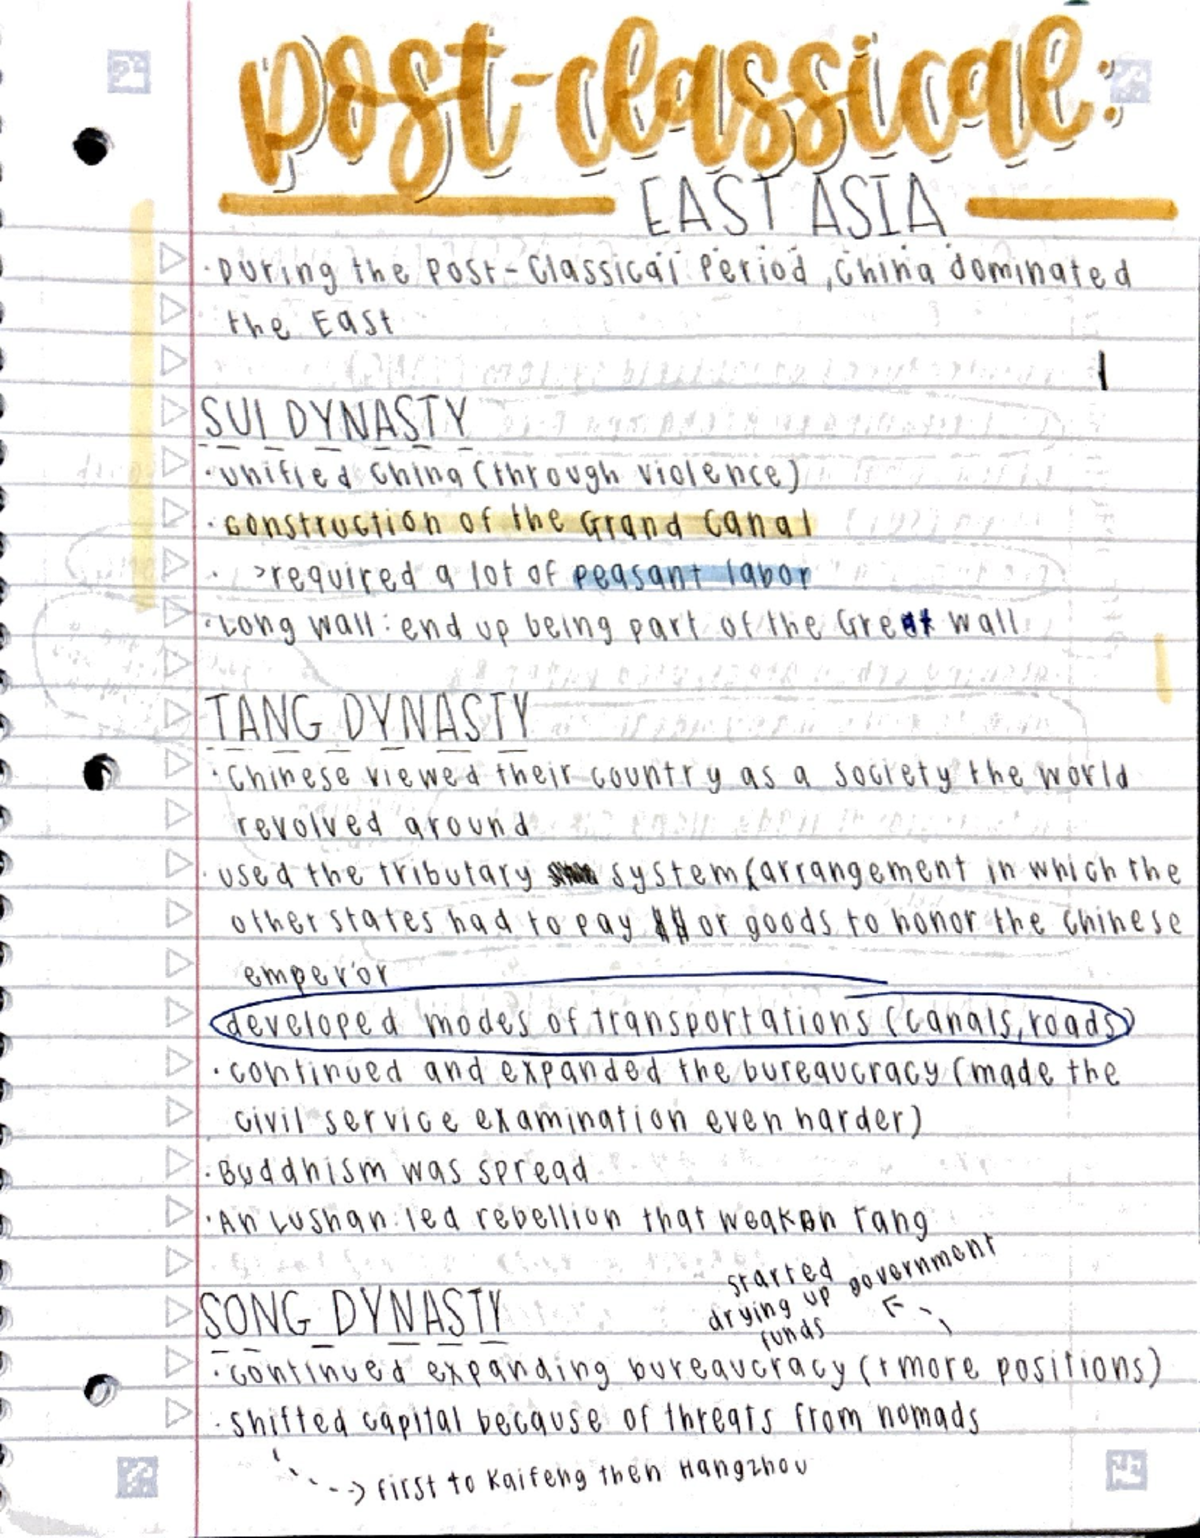 post-classical:
EAST ASIA
· During the Post-Classical Period, China dominated
the East
SUI DYNASTY
· unified China (through violence)
· construction of the Grand Canal
· >required a lot of peasant labor
· Long wall: end up being part of the Great wall
TANG DYNASTY
· Chinese viewed their country as a society the world
revolved around
· used the tributary system (arrangement in which the
other states had to pay $$ or goods to honor the Chinese
emperor
developed modes of transportations (canals, roads)
· continued and expanded the bureaucracy (made the
civil service examination even harder)
· Buddhism was spread
· An Lushan: led rebellion that weaken Tang
started drying up government funds
SONG DYNASTY
· continued expanding bureaucracy (+ more positions)
· shifted capital because of threats from nomads
---> first to Kaifeng then Hangzhou